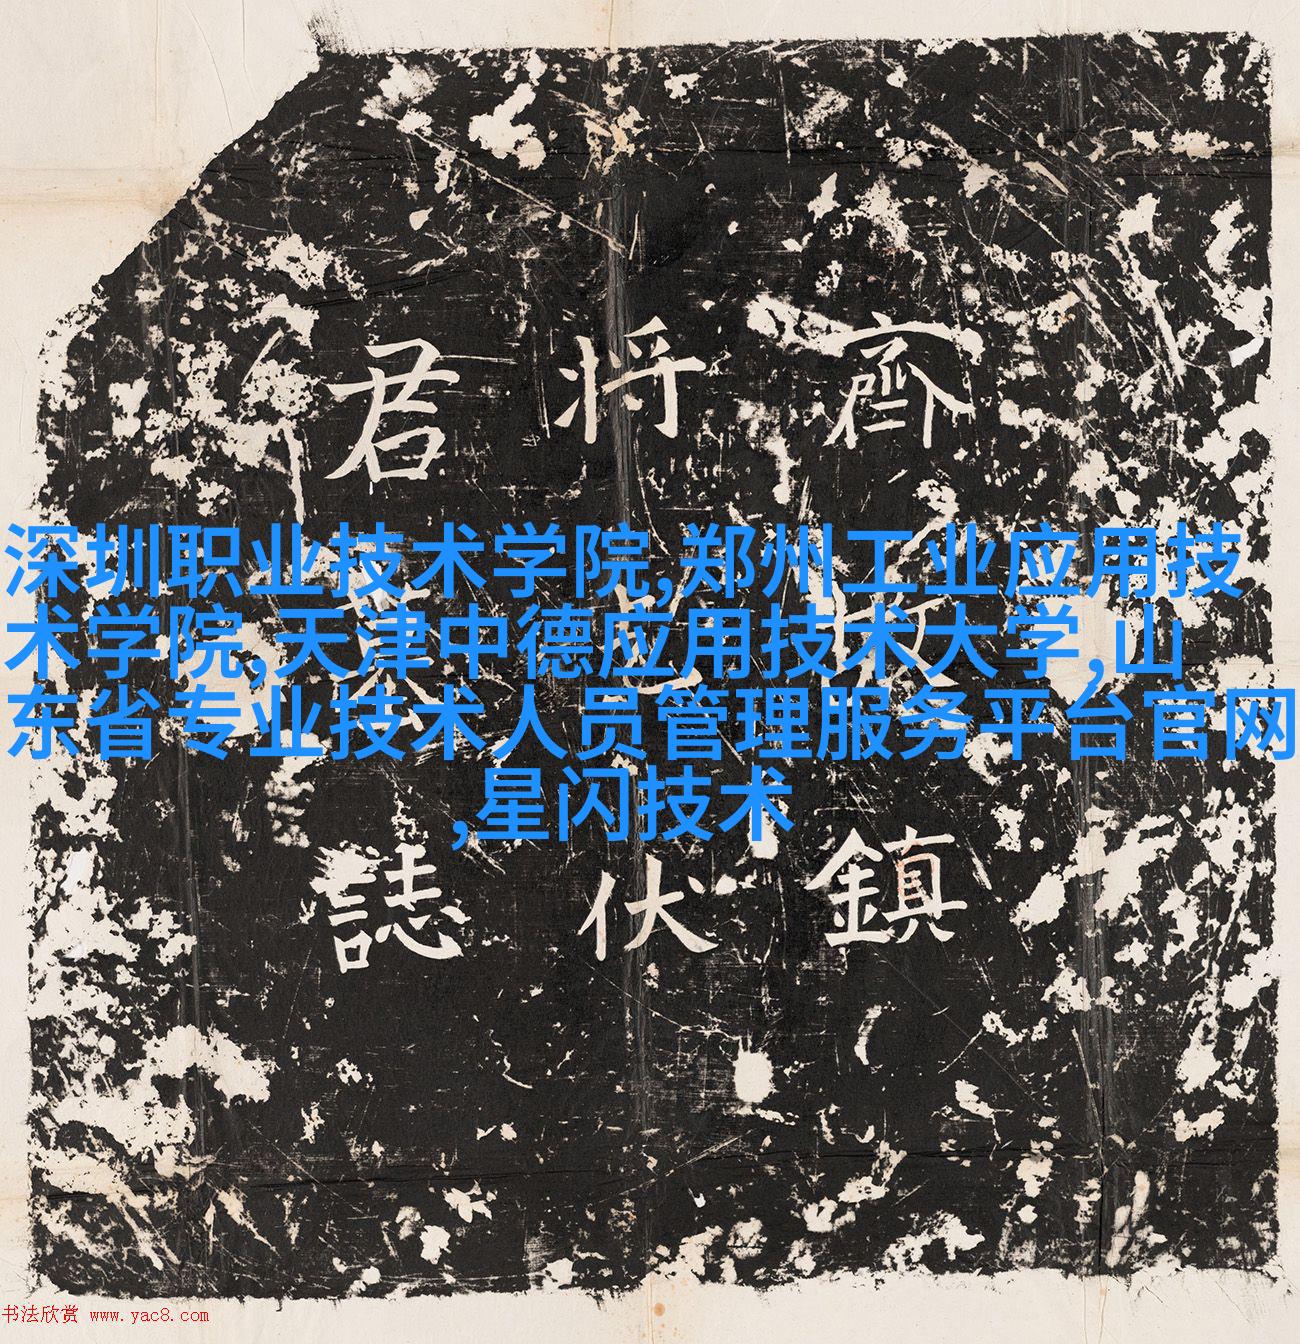 齊鎮
将伏
君誌
深圳职业技术学院,郑州工业应用技
术学院,天津中德应用技术大学,山
东省专业技术人员管理服务平台官网
,星闪技术
书法欣赏 www.yac8.com